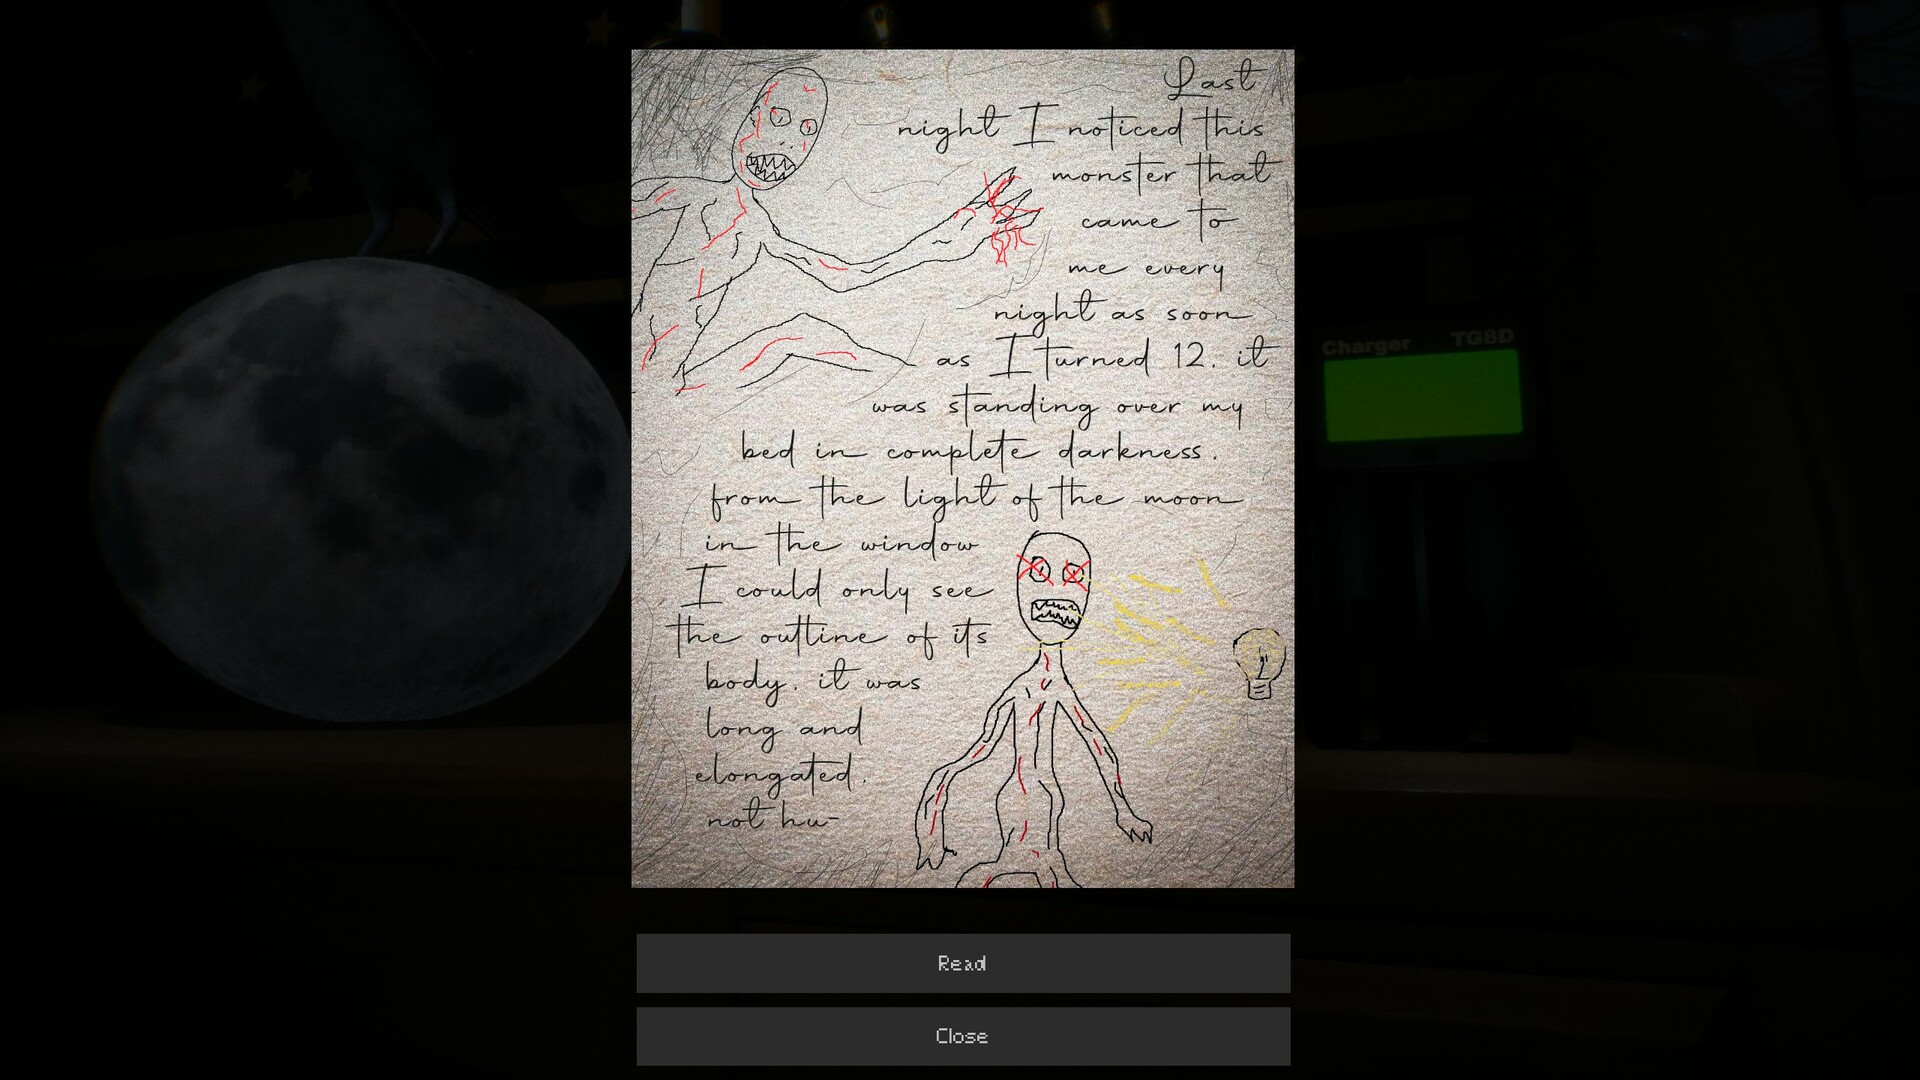 Last
night I noticed this
monster that
came to
me every
night as soon
as I turned 12. it
was standing over my
bed in complete darkness.
from the light of the moon
in the window
I could only see
the outline of its
body. it was
long and
elongated.
not hu-
Charger TGBD
Read
Close